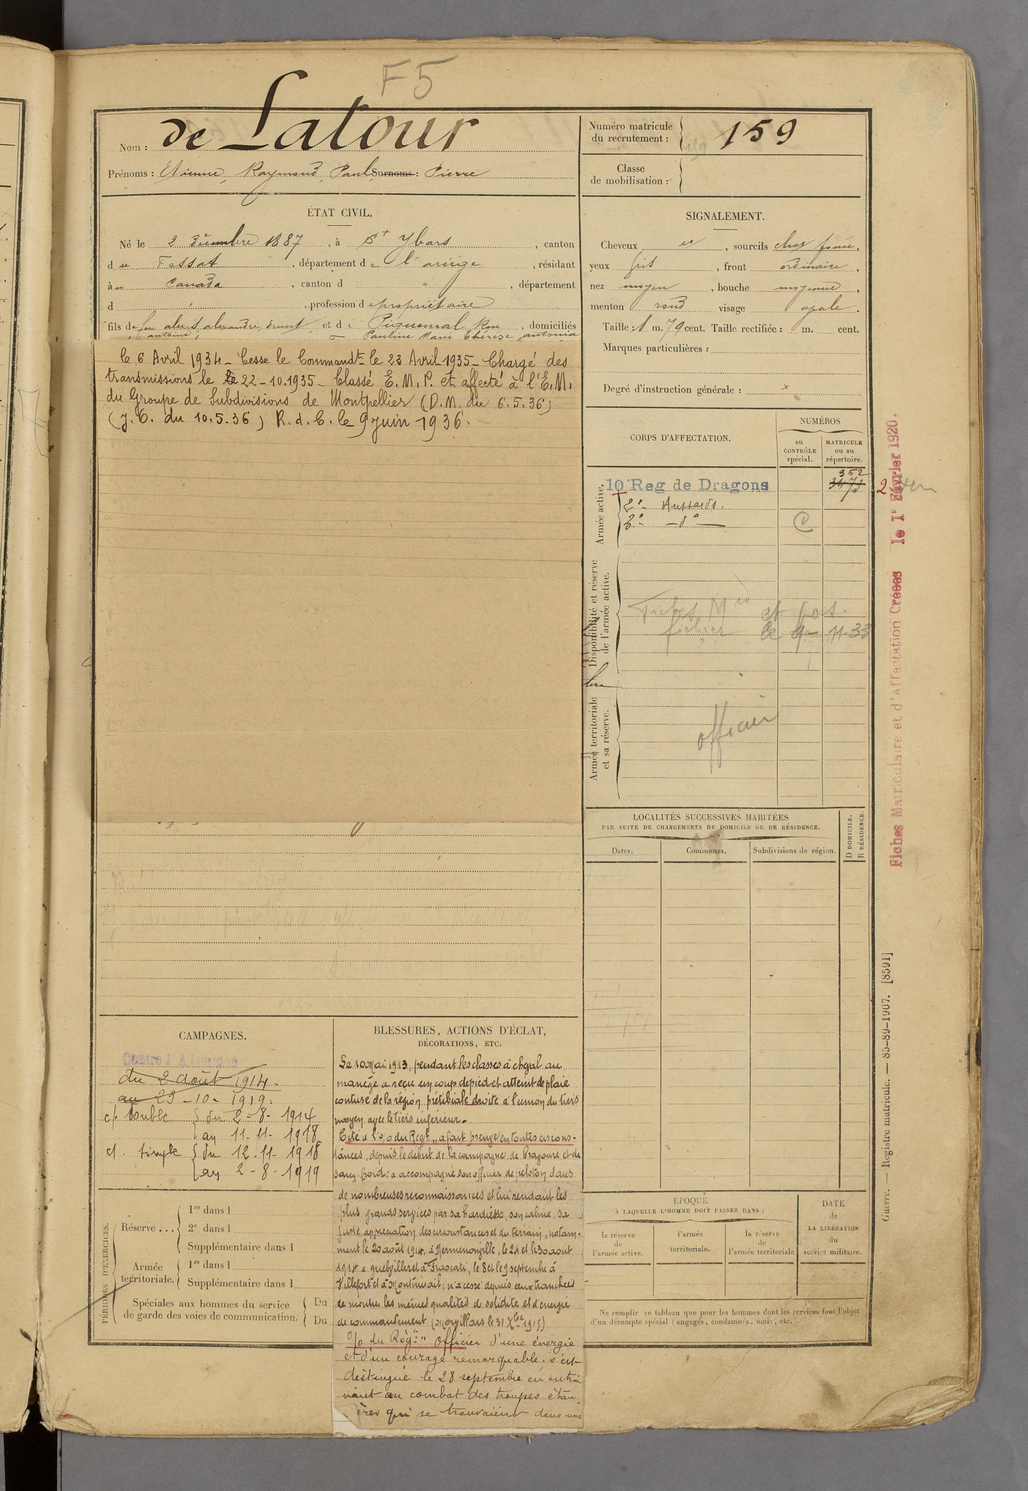 F5
Nom : de Latour
Numéro matricule du recrutement : 159
Prénoms : Etienne, Raymond, Paul Surnoms : Pierre
Classe de mobilisation :
ÉTAT CIVIL.
Né le 2 Décembre 1887, à St Ybars, canton
du Fossat, département de l'ariège, résidant
à Canada, canton d " , département
d , profession de propriétaire
fils de feu et d , domiciliés
SIGNALEMENT.
Cheveux , sourcils ,
yeux gris, front ordinaire,
nez moyen, bouche moyenne,
menton rond visage ovale.
Taille : 1 m. 79 cent. Taille rectifiée : m. cent.
Marques particulières :
Degré d'instruction générale : x
le 6 Avril 1934 - Cesse le Commandt le 23 Avril 1935 - Chargé des
transmissions le 22-10-1935 - Classé E.M.P. et affecté à l'E.M.
du Groupe de Subdivisions de Montpellier (D.M. du 6.5.36)
(J.O. du 10.5.36) R.d.C. le 9 juin 1936.
CORPS D'AFFECTATION.
NUMÉROS
au CONTRÔLE spécial.
MATRICULE ou au répertoire.
Armée active.
10 Reg de Dragons
352
2e Hussards.
2e - do -
Disponibilité et réserve de l'armée active.
Fiches Mle et pos.
fichier le 9-11-33
Armée territoriale et sa réserve.
officier
Fiches Matriculaire et d'Affectation Créées le 1er Février 1920.
LOCALITÉS SUCCESSIVES HABITÉES
PAR SUITE DE CHANGEMENTS DE DOMICILE OU DE RÉSIDENCE.
D DOMICILE.
R RÉSIDENCE.
Dates.
Communes.
Subdivisions de région.
Guerre. — Registre matricule. — 85-89-1907. [8591]
CAMPAGNES.
Contre l'Allemagne
du 2 août 1914.
au 23-10-1919.
c/ double { du 2-8-1914
au 11-11-1918
c/ simple { du 12-11-1918
au 2-8-1919
BLESSURES, ACTIONS D'ÉCLAT,
DÉCORATIONS, ETC.
Le 10 Mai 1913, pendant les classes à cheval au
manège a reçu un coup de pied et atteint de plaie
contuse de la région prétibiale droite à l'union du tiers
moyen avec le tiers inférieur.
Cité à l'o/o du Regt "a fait preuve en toutes circons-
tances, depuis le début de la campagne de bravoure et de
sang-froid : a accompagné son officier de peloton dans
de nombreuses reconnaissances et lui rendant les
plus grands services par sa hardiesse, son calme, sa
juste appréciation des circonstances et du terrain, notam-
ment le 20 août 1914, à , le 24 et le 30 août
1914 à et à , le 8 et le 9 septembre à
et à , n'a cessé depuis aux tranchées
de montrer les mêmes qualités de solidité et d'énergie
de commandement ( le 31 Xbre 1915)
O/o du Régt "Officier d'une énergie
et d'un courage remarquable. s'est
distingué le 28 septembre en entraî
nant au combat des troupes étran
gères qui se trouvaient dans une
PÉRIODES D'EXERCICES.
Réserve... { 1re dans l
2e dans l
Supplémentaire dans l
Armée territoriale. { 1re dans l
Supplémentaire dans l
Spéciales aux hommes du service de garde des voies de communication. { Du
Du
ÉPOQUE
À LAQUELLE L'HOMME DOIT PASSER DANS :
la réserve de l'armée active.
l'armée territoriale.
la réserve de l'armée territoriale
DATE de LA LIBÉRATION du service militaire.
Ne remplir ce tableau que pour les hommes dont les services font l'objet
d'un décompte spécial (engagés, condamnés, omis, etc.